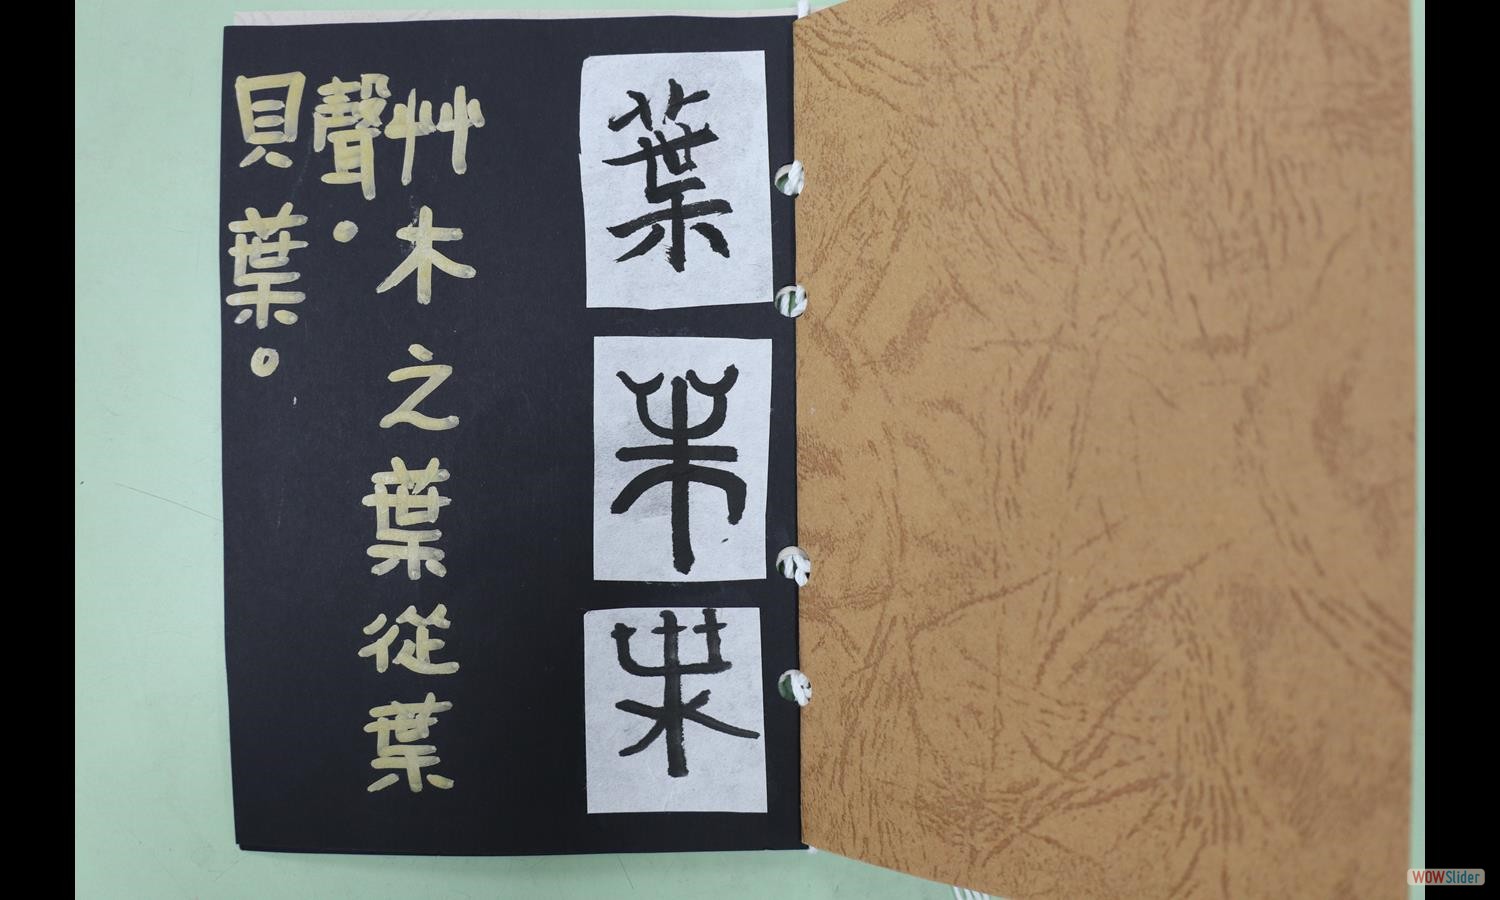 葉
艸木之葉從葉
聲。
貝葉。
WOWSlider